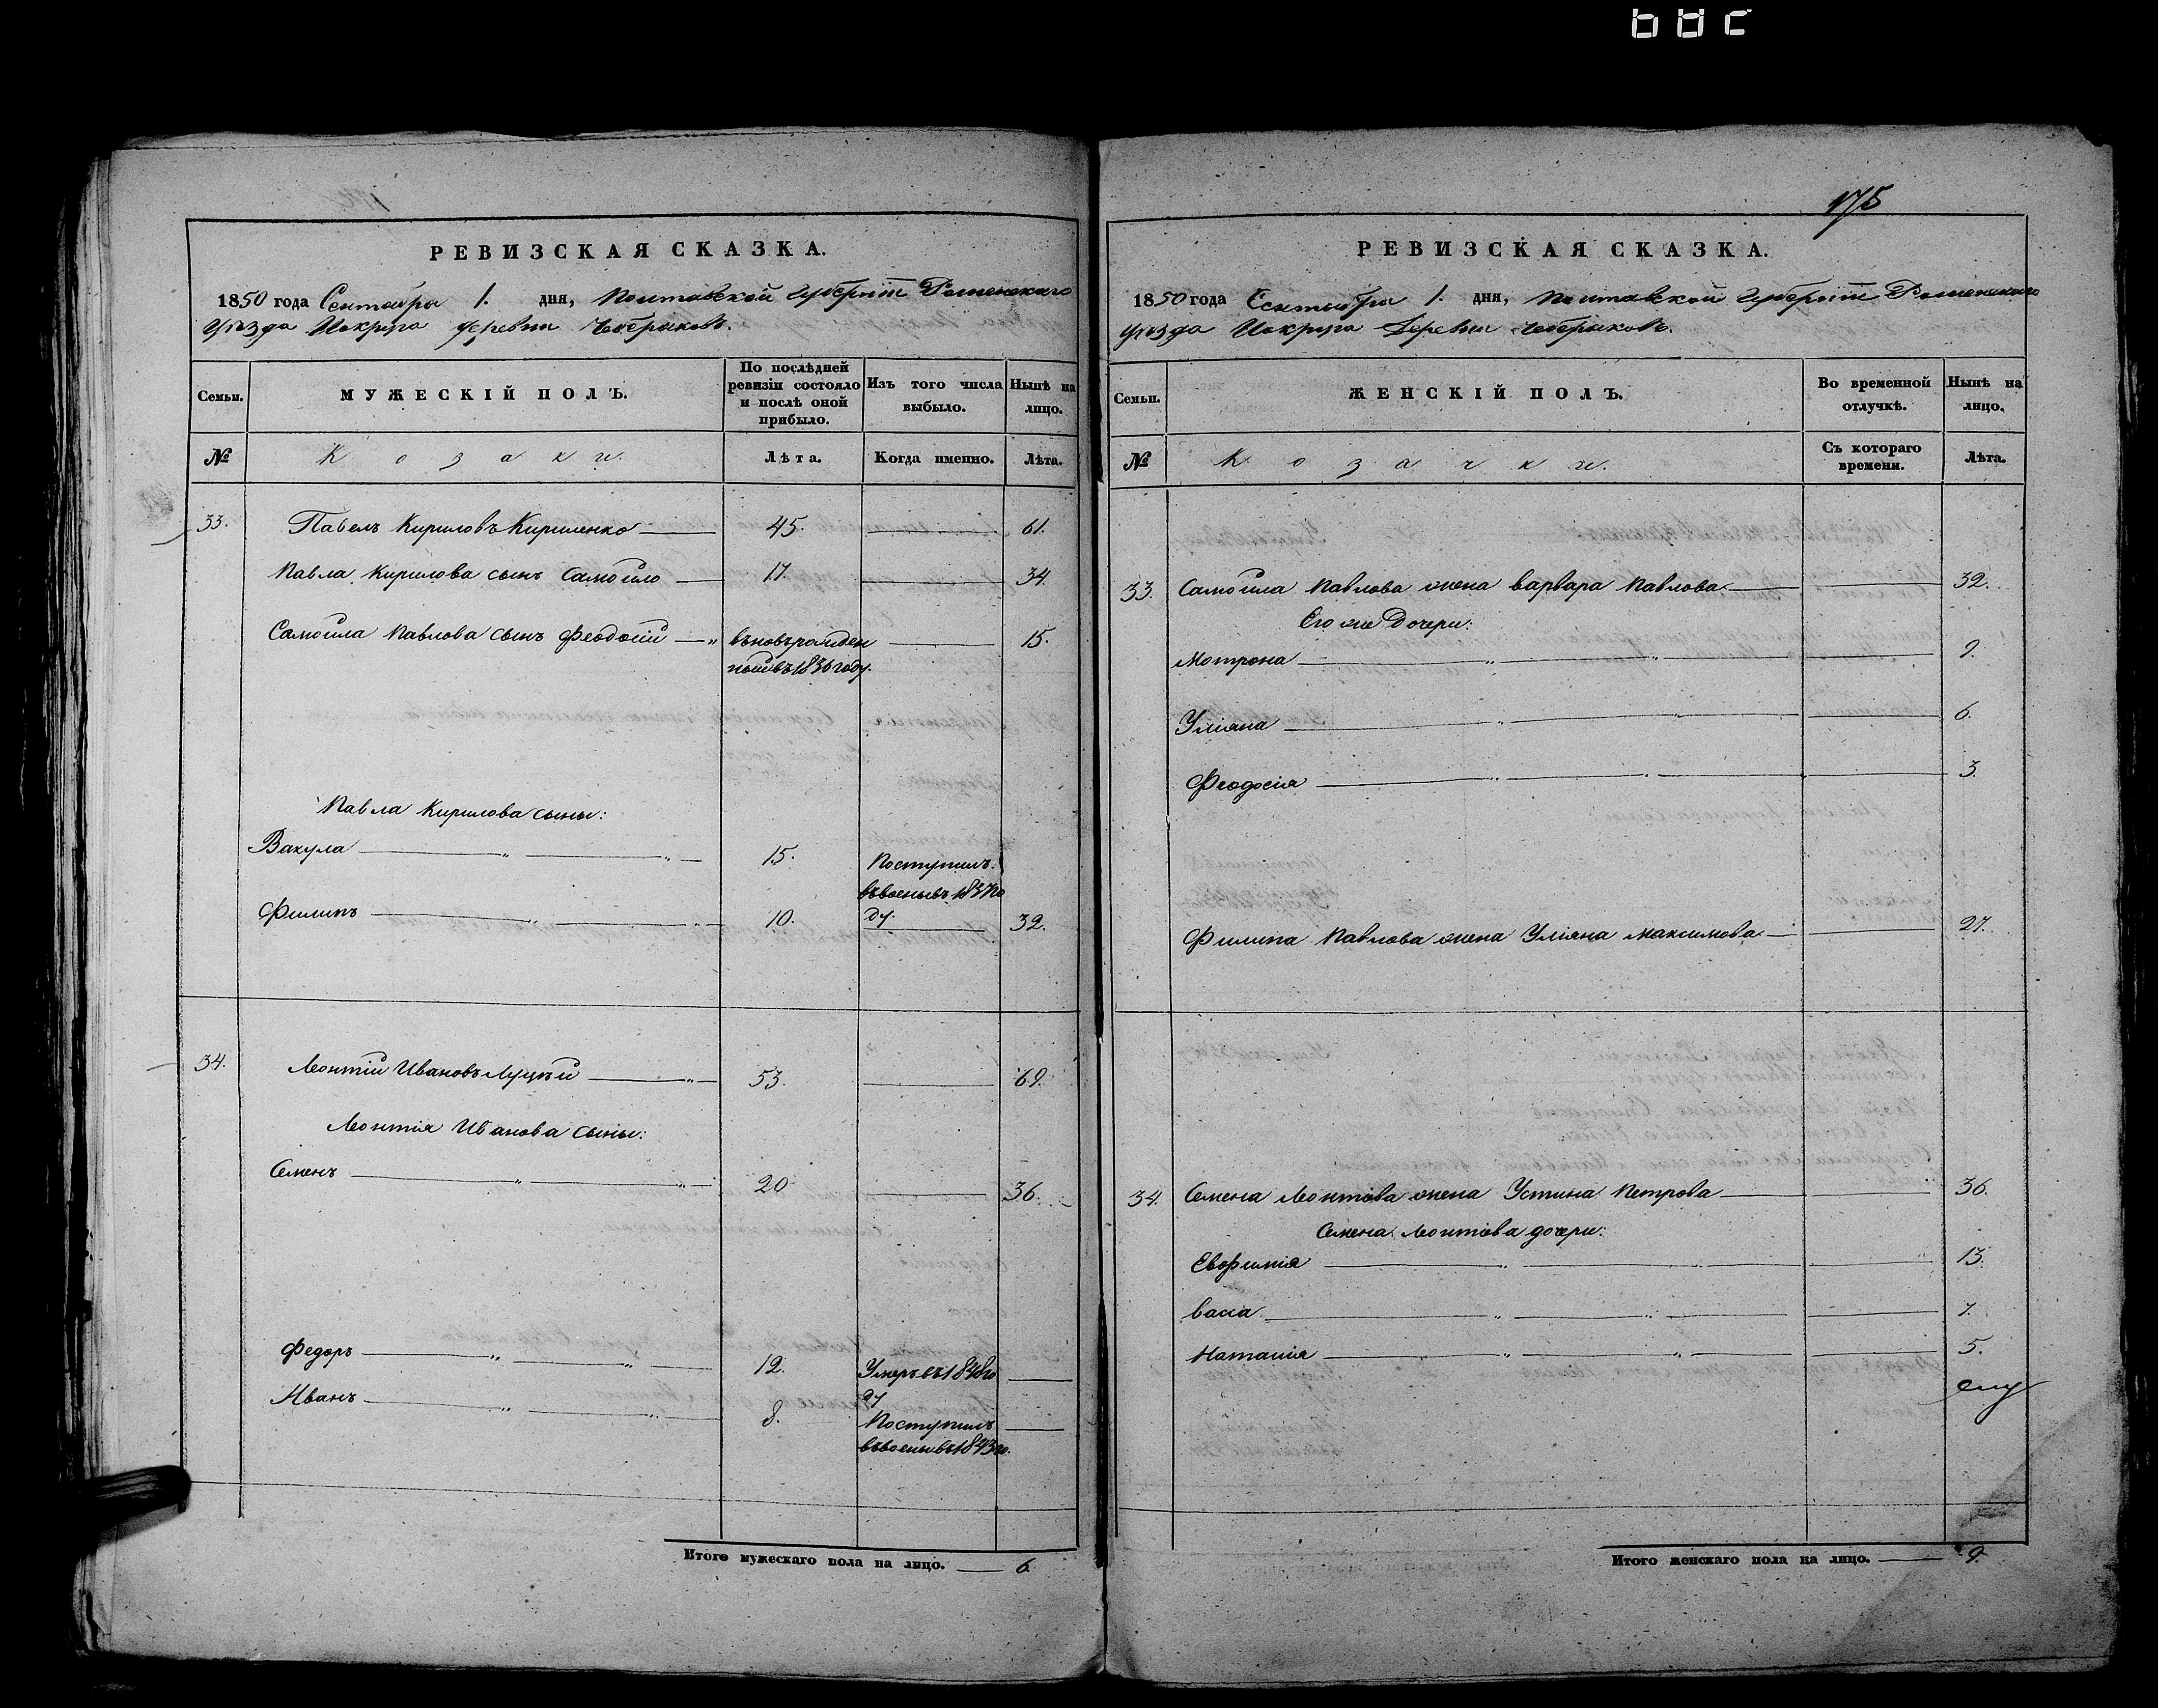 175
РЕВИЗСКАЯ СКАЗКА.
1850 года Сентября 1. дня, Полтавской Губернiи Роменскаго
Уѣзда И округа деревни Чеберяковъ.
Семьи.
МУЖЕСКІЙ ПОЛЪ.
По послѣдней ревизіи состояло и послѣ оной прибыло.
Изъ того числа выбыло.
Нынѣ на лицо.
№
Козаки.
Лѣта.
Когда именно.
Лѣта.
33. Павелъ Кириловъ Кириленко 45. 61.
Павла Кирилова сынъ Самойло 17. 34.
Самойла Павлова сынъ Феодосій — „ вновьрожден 15.
ныйвъ1836году.
Павла Кирилова сыны:
Вакула — „ — „ 15. Поступилъ.
въвоеныевъ1837го
Филипъ — „ — „ 10. ду. 32.
34. Леонтій Ивановъ Луцкій — „ 53. 69.
Леонтія Иванова сыны:
Семенъ — „ — „ 20 36.
Федоръ — „ — „ 12. Умеръвъ1848го
ду
Иванъ — „ — „ 8. Поступилъ
въвоеныевъ1843го.
Итого мужескаго пола на лицо. 6.
РЕВИЗСКАЯ СКАЗКА.
1850 года Сентября 1. дня, Полтавской Губернiи Роменскаго
Уѣзда И округа Деревни Чеберяковъ.
Семьи.
ЖЕНСКІЙ ПОЛЪ.
Во временной отлучкѣ.
Нынѣ на лицо.
№
Козачки.
Съ котораго времени.
Лѣта.
33. Самойла Павлова жена Варвара Павлова 32.
Его же Дочери:
Мотрона — „ — „ 9.
Уліяна — „ — „ 6.
Феодосія — „ — „ 3.
Филипа Павлова жена Уліяна Максимова 27.
34. Семена Леонтіева жена Устина Петрова 36.
Семена Леонтіева дочери:
Евфимія — „ — 13.
Васса — „ — „ 7.
Наталія — „ — „ 5.
Итого женскаго пола на лицо. 9.